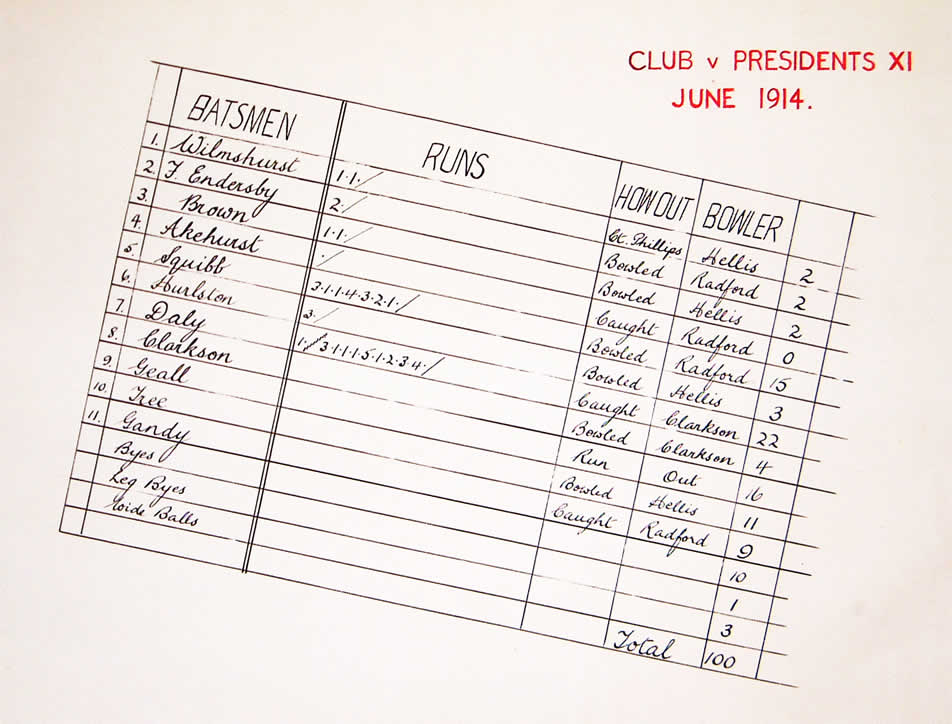 CLUB v PRESIDENTS XI
JUNE 1914.
BATSMEN RUNS HOW OUT BOWLER
1. Wilmshurst 1·1·/ Ct. Phillips Hellis 2
2. F. Endersby 2·/ Bowled Radford 2
3. Brown 1·1·/ Bowled Hellis 2
4. Akehurst ·/ Caught Radford 0
5. Squibb 3·1·1·4·3·2·1·/ Bowled Radford 15
6. Hurlston 3·/ Bowled Hellis 3
7. Daly 1·/3·1·1·1·5·1·2·3·4·/ Caught Clarkson 22
8. Clarkson Bowled Clarkson 4
9. Geall Run Out 16
10. Tree Bowled Hellis 11
11. Gandy Caught Radford 9
Byes 10
Leg Byes 1
Wide Balls 3
Total 100